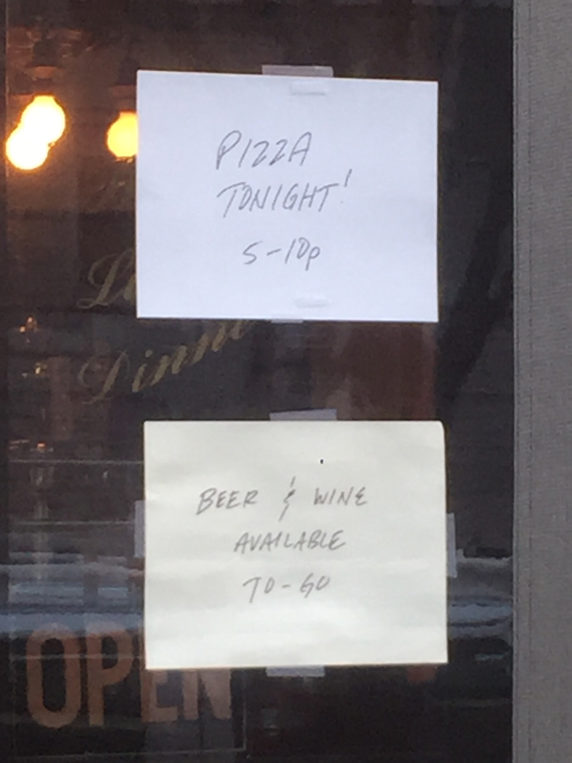 PIZZA
TONIGHT!
5-10p
Dinne
BEER & WINE
AVAILABLE
TO-GO
OPEN